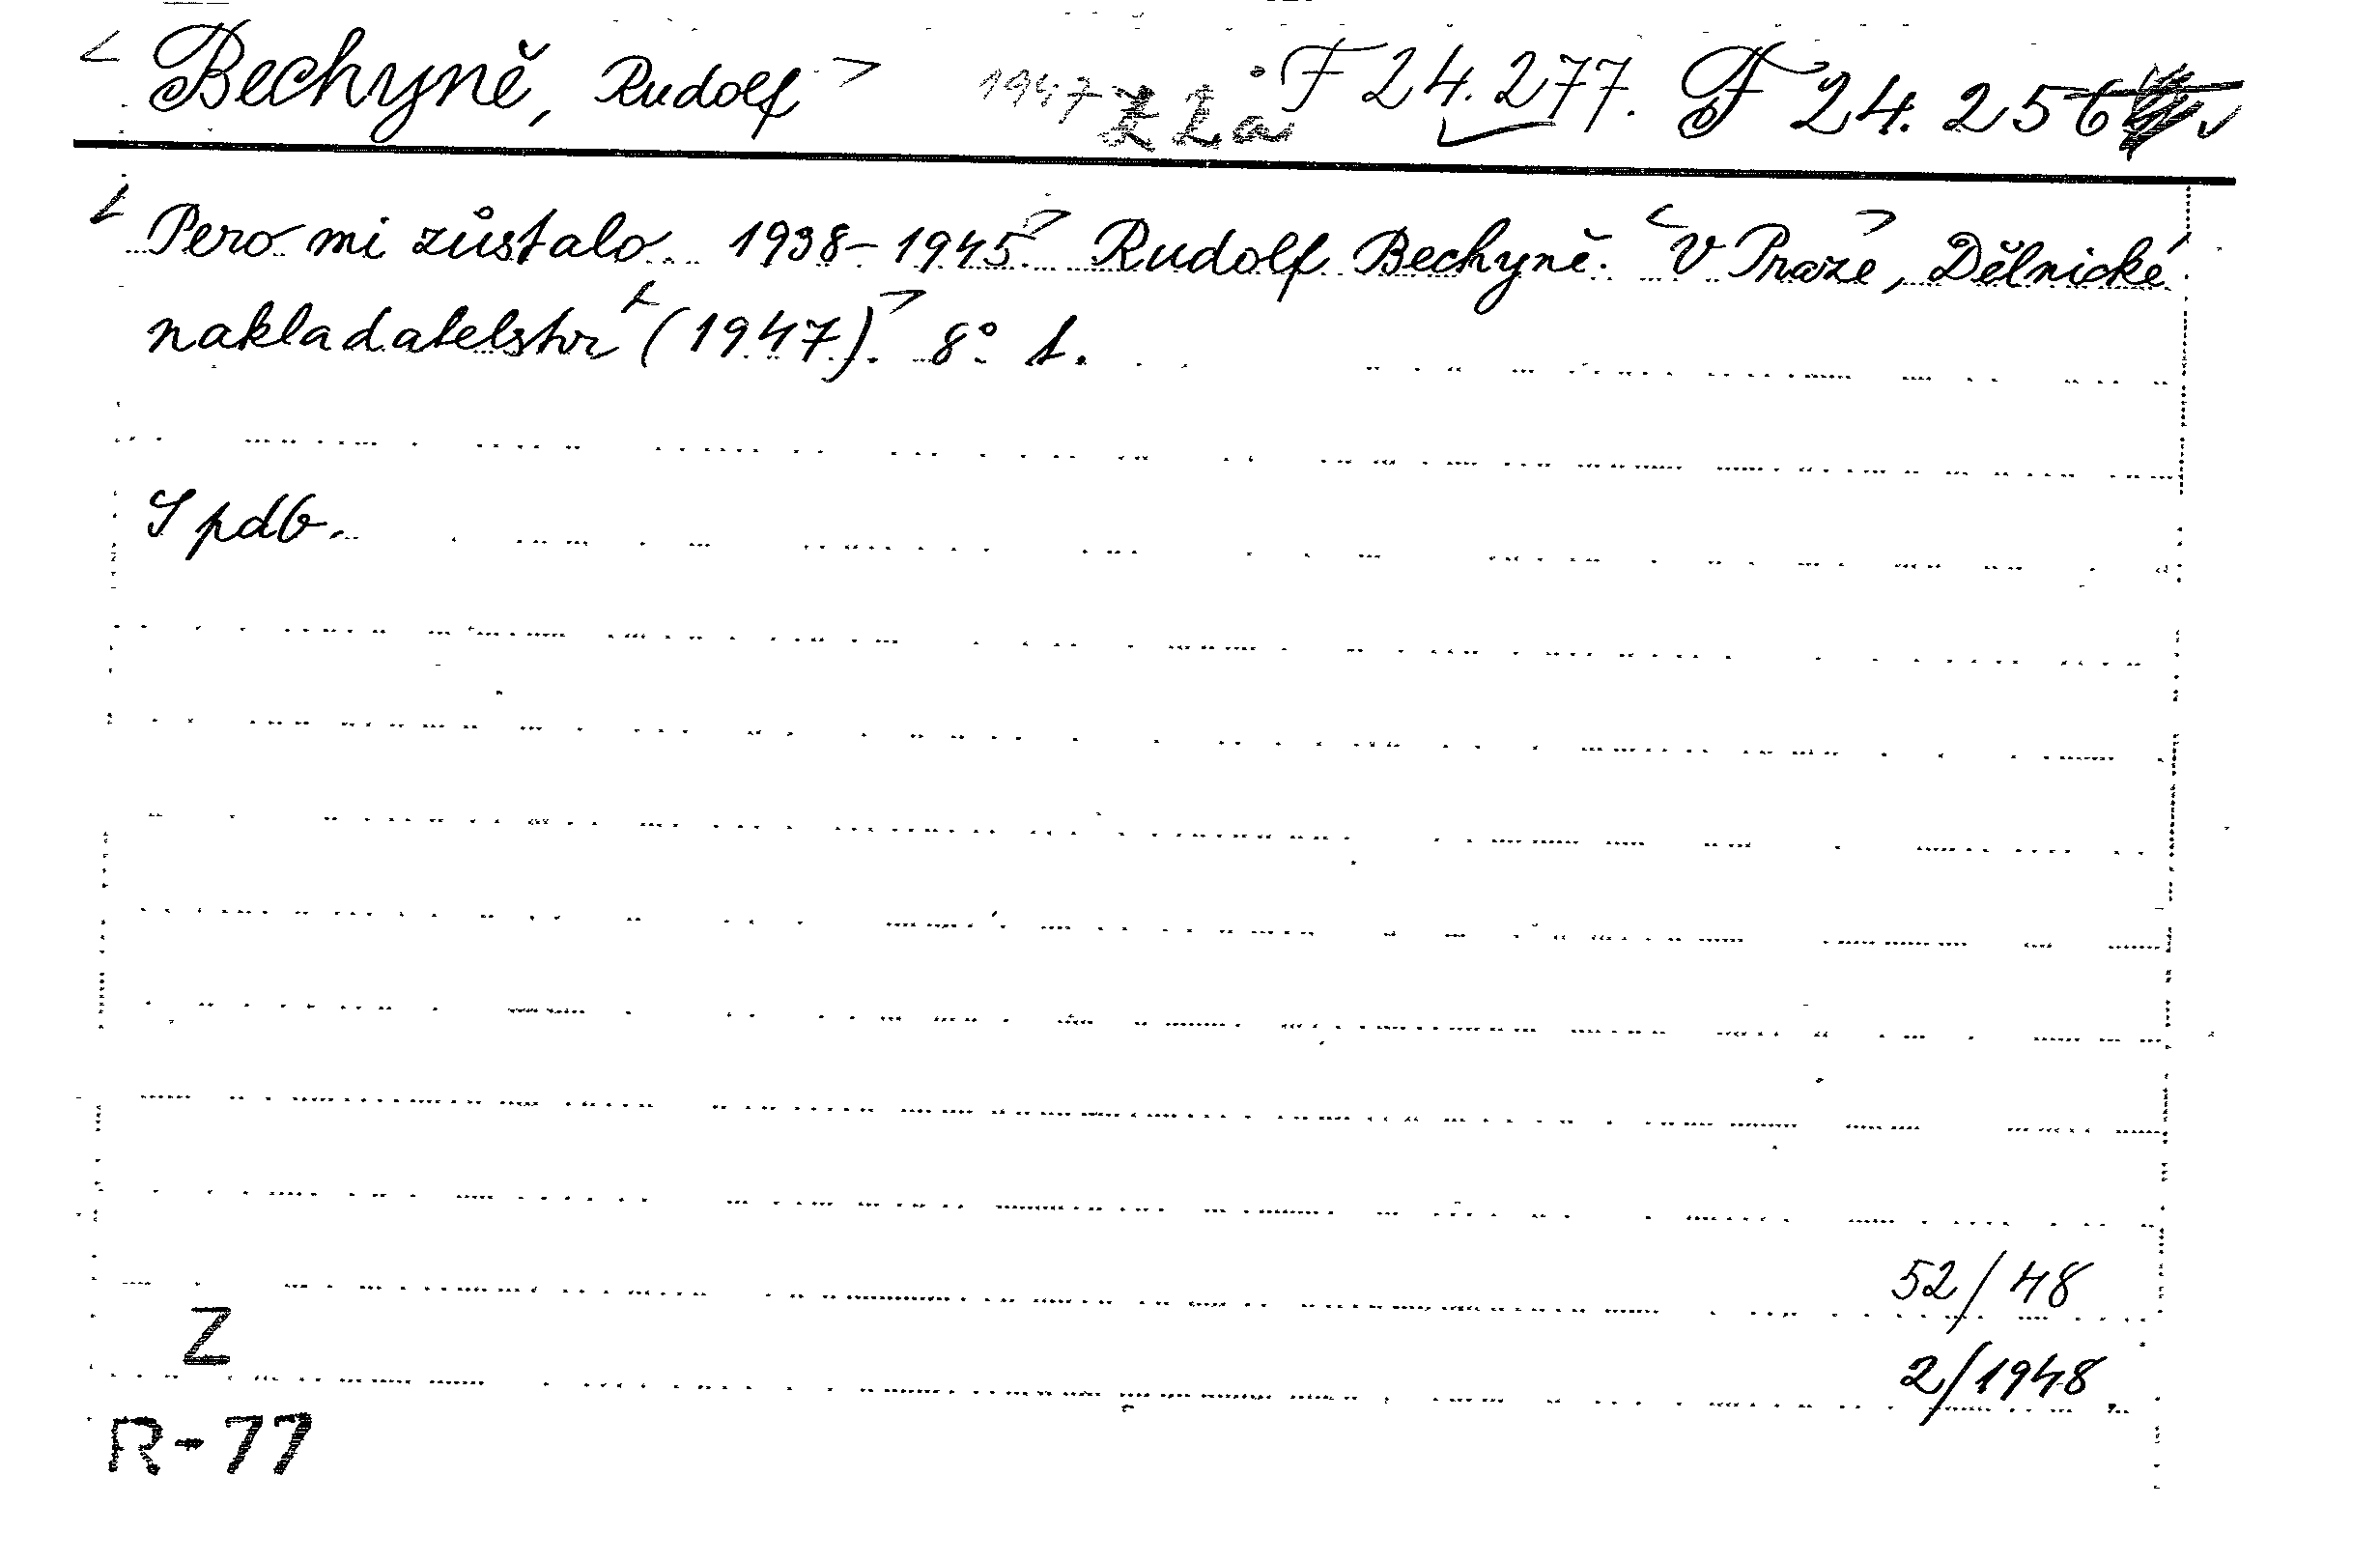 < Bechyně, Rudolf > 1947 F 24.277. F 24.256
< Pero mi zůstalo. 1938-1945 > Rudolf Bechyně. < V Praze >, Dělnické
nakladatelství < (1947) >. 8° 1.
S pdb.
52/48
Z
2/1948.
R-77